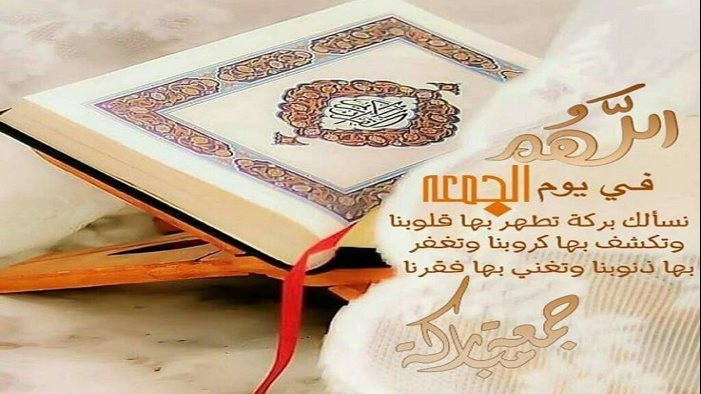 اللَّهُم
في يوم الجمعه
نسألك بركة تطهر بها قلوبنا
وتكشف بها كروبنا وتغفر
بها ذنوبنا وتغني بها فقرنا
جمعة مباركة